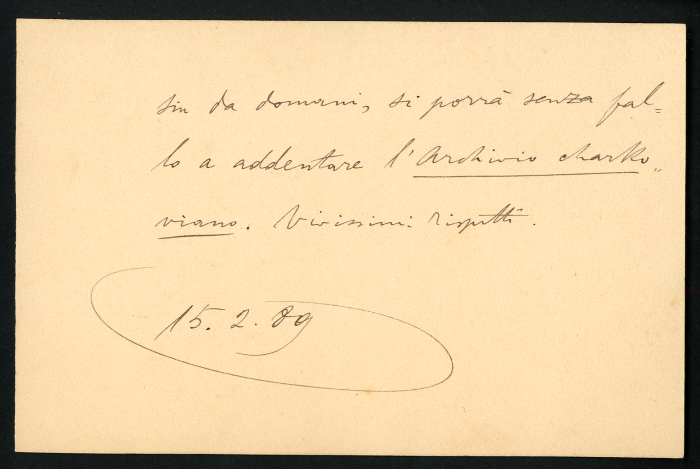 sin da domani, si porrà senza fal=
lo a addentare l'Archivio charko„
viano. Vivissimi rispetti.
15. 2. 89